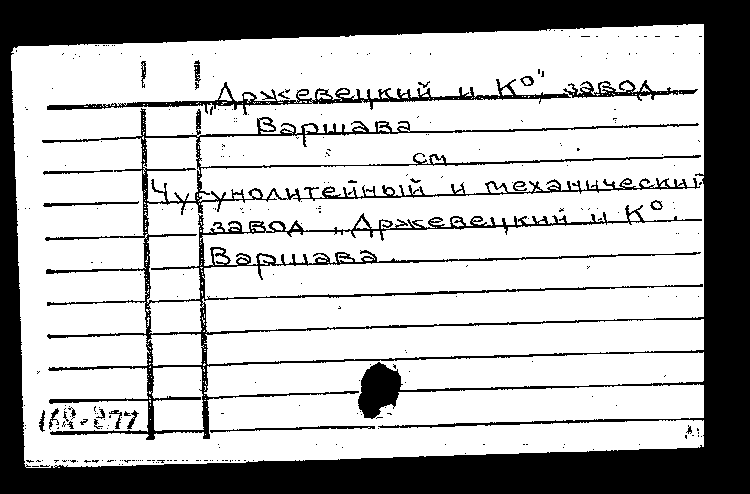 „Држевецкий и К⁰“, завод.
Варшава
см
Чугунолитейный и механический
завод „Држевецкий и К⁰.
Варшава.
168-877